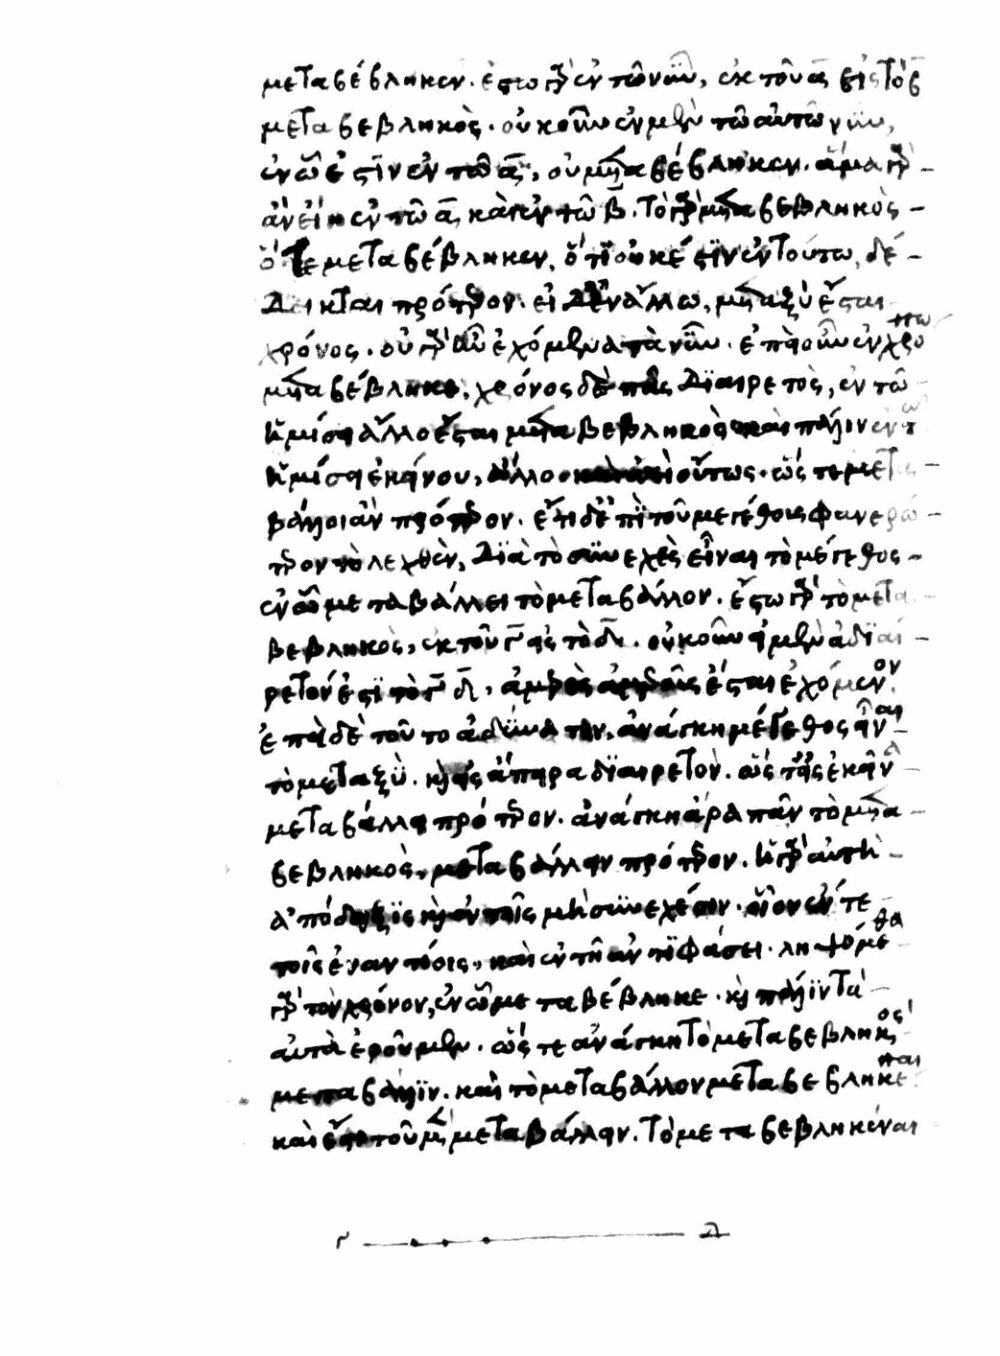 μεταβέβληκεν. ἔστω γὰρ ἐν τῶ νῦν, ἐκ τοῦ α εἰς τὸ β
μεταβεβληκὸς. οὐκοῦν ἐν μὲν τῶ αὐτῶ νῦν,
ἐν ὧ ἐστὶν ἐν τῶ α, οὐ μεταβέβληκεν. ἅμα γὰρ
ἂν εἴη ἐν τῶ α, καὶ ἐν τῶ β. τὸ γὰρ μεταβεβληκὸς
ὅτε μεταβέβληκεν, ὅτι οὐκ έστιν ἐν τούτω, δέ
δεικται πρότερον. εἰ δ' ἐν ἄλλω, μεταξὺ ἔσται
χρόνος. οὐ γὰρ ἦν ἐχόμενα τὰ νῦν. ἐπεὶ οὖν ἐν χρόνω
μεταβέβληκε, χρόνος δὲ πᾶς διαιρετὸς, ἐν τῶ
ἡμίσει ἄλλο ἔσται μεταβεβληκὸς καὶ πάλιν ἐν τῶ
ἡμίσει ἐκείνου, ἄλλο καὶ ἀεὶ οὕτως. ὥστε μετα
βάλλοι ἂν πρότερον. ἔτι δ' ἐπὶ τοῦ μεγέθους φανερώ
τερον τὸ λεχθὲν, διὰ τὸ συνεχὲς εἶναι τὸ μέγεθος
ἐν ὧ μεταβάλλει τὸ μεταβάλλον. ἔστω γὰρ τὸ μετα
βεβληκὸς, ἐκ τοῦ γ εἰς τὸ δ. οὐκοῦν εἰ μὲν ἀδιαί
ρετόν ἐστι τὸ γ δ, ἀμερὲς ἀμεροῦς έσται ἐχόμενον.
ἐπεὶ δὲ τοῦτο ἀδύνατον, ἀνάγκη μέγεθος εἶναι
τὸ μεταξὺ. καὶ εἰς ἄπειρα διαιρετὸν. ὥστ' εἰς ἐκεῖνα
μεταβάλλει πρότερον. ἀνάγκη ἄρα πᾶν τὸ μετα
βεβληκὸς, μεταβάλλειν πρότερον. ἡ γὰρ αὐτὴ
ἀπόδειξις καὶ ἐν τοῖς μὴ συνεχέσιν. οἷον ἐν τε
τοῖς ἐναντίοις, καὶ ἐν τῆ ἀντιφάσει. ληψόμεθα
γὰρ τὸν χρόνον, ἐν ὧ μεταβέβληκε. καὶ πάλιν τὰ
αὐτὰ ἐροῦμεν. ὥστε ἀνάγκη τὸ μεταβεβληκὸς
μεταβάλλειν. καὶ τὸ μεταβάλλον μεταβεβληκέναι
καὶ ἔσται τοῦ μὲν μεταβάλλειν. τὸ μεταβεβληκέναι
γ δ